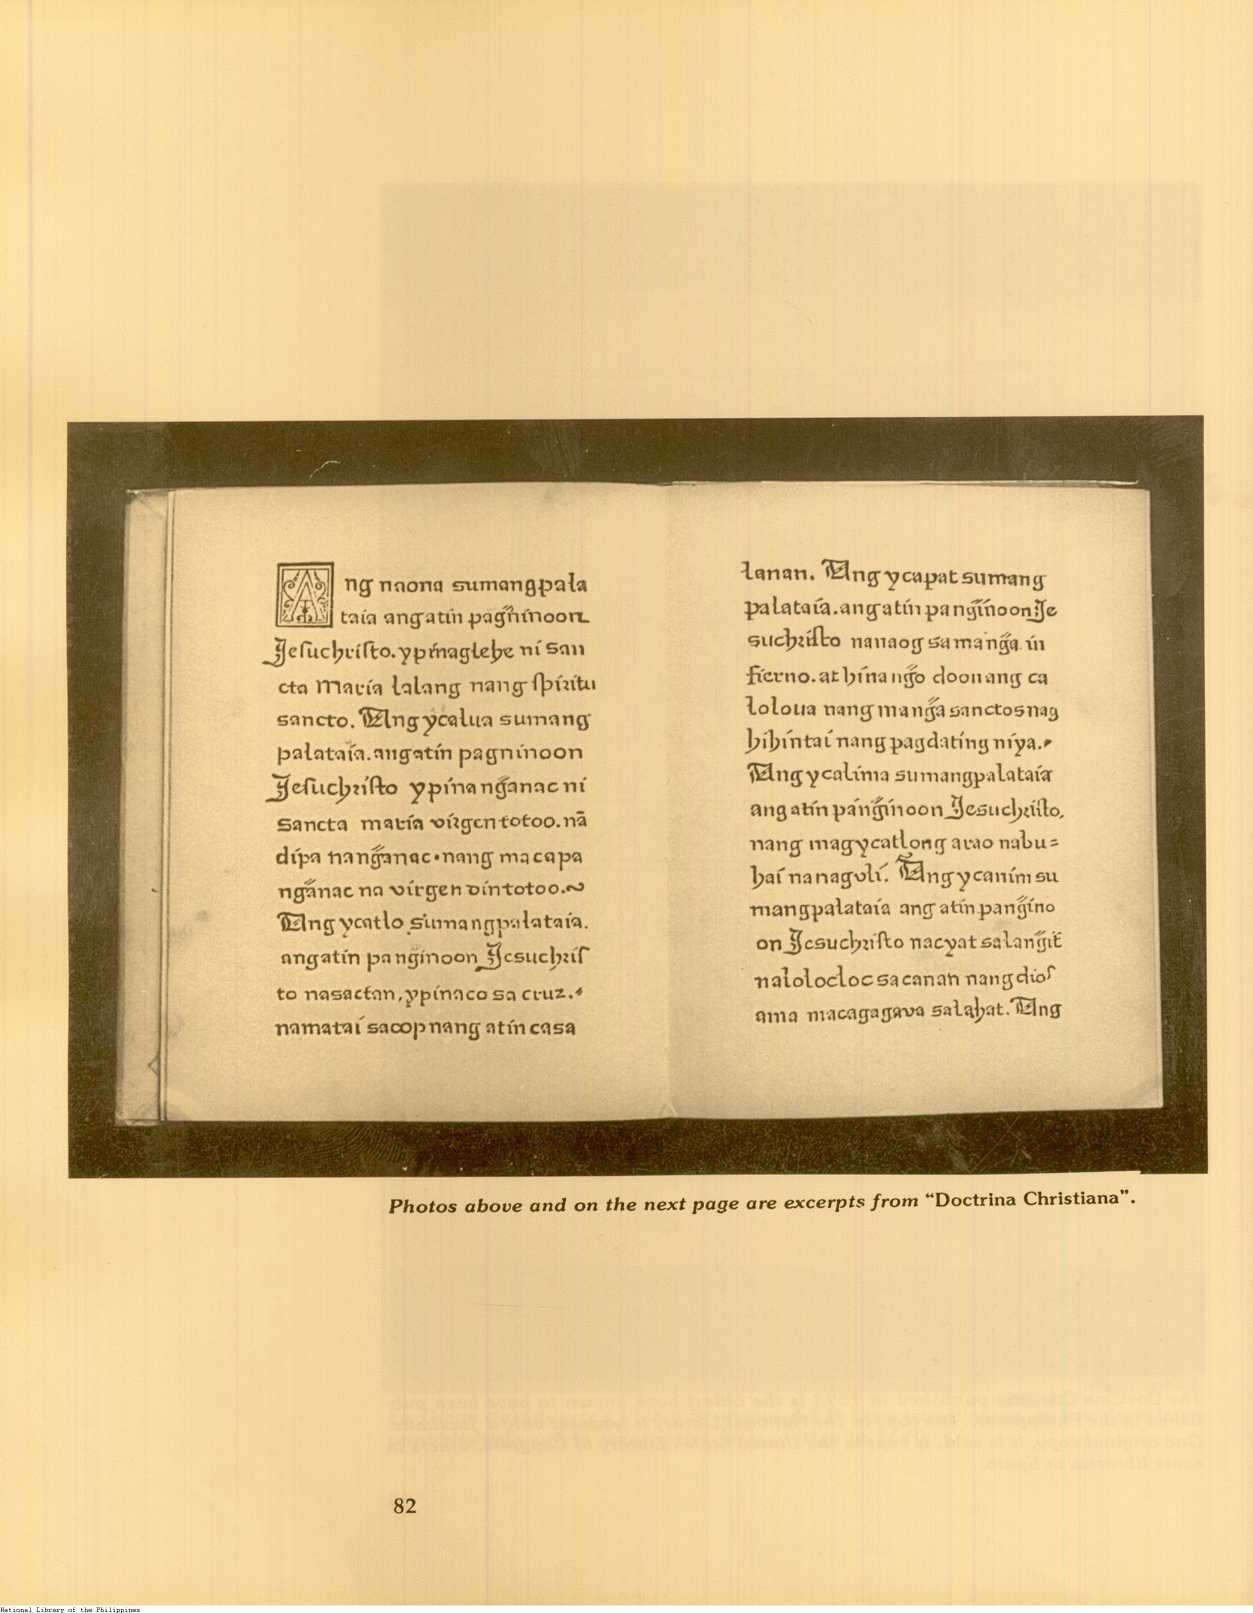 Ang naona sumangpala
taía angatín pagñ̃ínoon
Jesuchristo. ypínaglehe ni san
cta María lalang nang spiritu
sancto. Ang ycalua sumang
palataía. angatín pagnínoon
Jesuchristo ypínang̃anac ní
sancta maría vírgen totoo. nã
dípa nang̃anac. nang macapa
ng̃anac na vírgen dín totoo.
Ang ycatlo sumangpalataía.
angatín pang̃ínoon Jesuchris
to nasactan, ypínaco sa cruz.
namataí sacop nang atín casa
lanan. Ang ycapat sumang
palataía. angatín pang̃ínoon Je
suchristo nanaog sa mang̃a ín
fierno. at hínang̃o doon ang ca
loloua nang mang̃a sanctos nag
hihíntaí nang pagdatíng níya.
Ang ycalíma sumangpalataía
ang atín páng̃ínoon Jesuchristo,
nang magycatlong arao nabu=
haí na nagolí. Ang ycaním su
mangpalataía ang atín pang̃íno
on Jesuchristo nacyat sa lang̃ít
nalolocloc sa canan nang dios
ama macagagava sa lahat. Ang
Photos above and on the next page are excerpts from “Doctrina Christiana”.
82
National Library of the Philippines